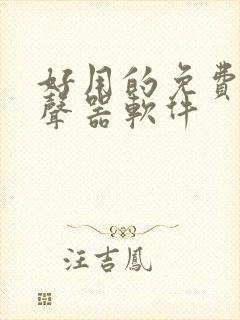 好用的免費
聲器軟件
汪吉鳳